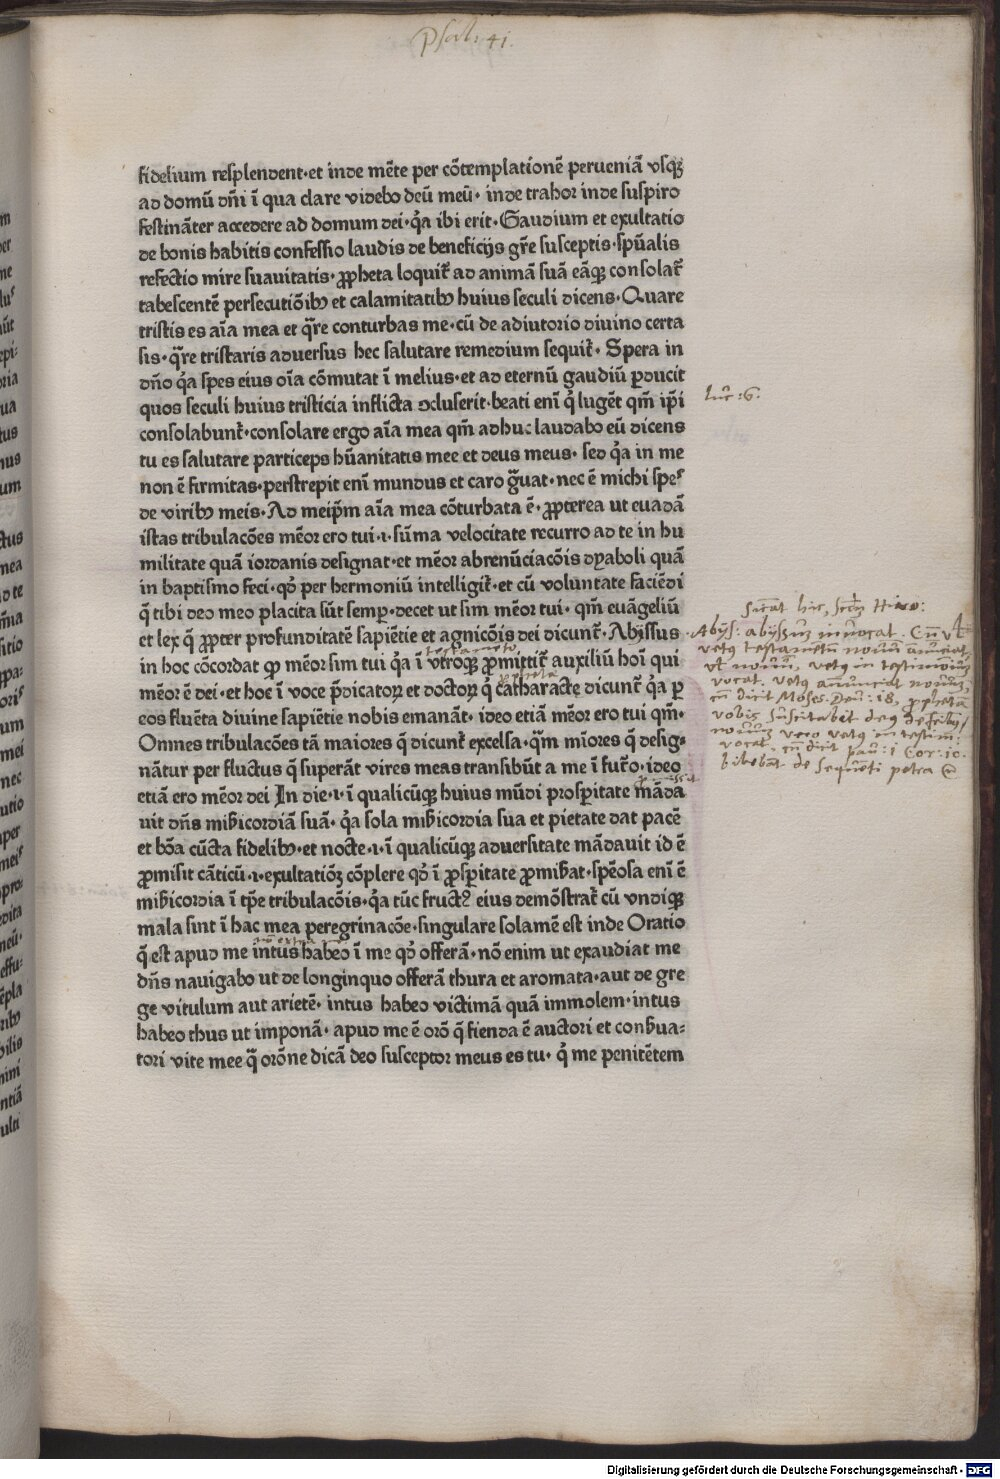 Psal. 41.
fidelium resplendent·et inde mēte per cōtemplationē perueniā vsqꝫ
ad domū dn̄i ī qua clare videbo deū meū· inde trahor inde suspiro
festināter accedere ad domum dei·qͥa ibi erit·Gaudium et exultatio
de bonis habitis confessio laudis de beneficijs gr̄e susceptis·spūalis
refectio mire suauitatis· ꝓpheta loquit᷑ ad animā suā eāqꝫ consolat᷑
tabescentē persecutiōibꝫ et calamitatibꝫ huius seculi dicens·Quare
tristis es aīa mea et qͣre conturbas me·cū de adiutorio diuino certa
sis·qͣre tristaris aduersus hec salutare remedium sequit᷑· Spera in
dn̄o qͥa spes eius oīa cōmutat ī melius·et ad eternū gaudiū ꝑducit
quos seculi huius tristicia inflicta ↄcluserit·beati enī qͥ lugēt qm̄ ip̄i
consolabunt᷑·consolare ergo aīa mea qm̄ adhuc laudabo eū dicens
tu es salutare particeps hūanitatis mee et deus meus· sed qͥa in me
non ē firmitas·perstrepit enī mundus et caro gͣuat·nec ē michi spes
de viribꝫ meis·Ad meip̄m aīa mea cōturbata ē· ꝓpterea ut euadā
istas tribulacōes mēor ero tui·i·sūma velocitate recurro ad te in hu
militate quā iordanis designat·et mēor abrenūciacōis dyaboli quā
in baptismo feci·qd̓ per hermoniū intelligit᷑·et cū voluntate faciēdi
q̄ tibi deo meo placita sūt semꝑ·decet ut sim mēor tui· qm̄ euāgeliū
et lex q̄ ꝓpter profunditatē sapiētie et agnicōis dei dicunt᷑·Abyssus
in hoc cōcordat qꝫ mēor sim tui qͥa ī vtroqꝫ ꝓmittit᷑ auxiliū hoī qui
mēor ē dei·et hoc ī voce p̄dicatoꝝ et doctoꝝ qͥ catharacte dicunt᷑ qͥa ꝑ
eos fluēta diuine sapiētie nobis emanāt· ideo etiā mēor ero tui qm̄·
Omnes tribulacōes tā maiores q̄ dicunt᷑ excelsa·qͣm mīores q̄ desig-
nātur per fluctus qͥ superāt vires meas transibūt a me ī fut᷑o·ideo
etiā ero mēor dei In die·i·ī qualicūqꝫ huius mūdi prosꝑitate māda
uit dn̄s mīb̄icordiā suā· qͥa sola mīb̄icordia sua et pietate dat pacē
et bōa cūcta fidelibꝫ·et nocte·i·ī qualicūqꝫ aduersitate mādauit id ē
ꝓmisit cāticū·i·exultatiōꝫ cōplere qd̓ ī ꝓsꝑitate ꝓmib̄at·spēosa enī ē
mīb̄icordia ī tꝑe tribulacōis·qͥa tūc fructꝰ eius demōstrat᷑ cū vndiqꝫ
mala sint ī hac mea peregrinacōe·singulare solamē est inde Oratio
q̄ est apud me intus habeo ī me qd̓ offerā·nō enim ut exaudiat me
dn̄s nauigabo ut de longinquo offerā thura et aromata·aut de gre
ge vitulum aut arietē· intus habeo victimā quā immolem·intus
habeo thus ut imponā· apud me ē orō q̄ fienda ē auctori et conb̄ua-
tori vite mee q̄ orōne dicā deo susceptor meus es tu· qͥ me penitētem
testamento
Luc: 6.
Abyss: abyssum inuocat.
vetus testamentū nouum annunciat
vocat. vetus annunciat nouum,
cū dicit Moses. Deu: 18, prophetā
vobis suscitabit deus de fribus
vocat, cū dicit pau: 1 Cor: 10.
bibebāt de sequēti petra
Digitalisierung gefördert durch die Deutsche Forschungsgemeinschaft - DFG